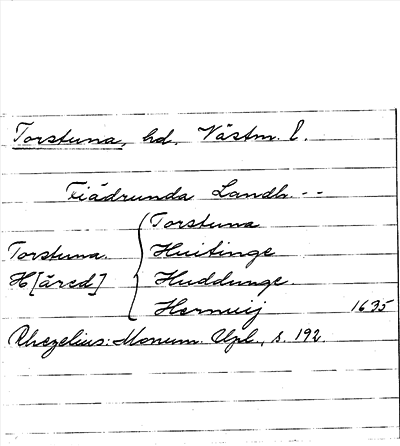 Torstuna, hd. Västm. l.
Fiädrunda Landh --
Torstuna
Torstuna. Huitinge
H[äred] Huddunge.
Hernuij 1635
Rhezelius: Monum. Upl., s. 192.